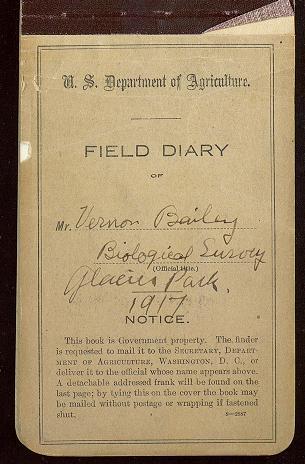 U. S. Department of Agriculture.
FIELD DIARY
OF
Mr. Vernon Bailey
Biological Survey
(Official title.)
Glacier Park.
1917
NOTICE.
This book is Government property. The finder
is requested to mail it to the SECRETARY, DEPART-
MENT OF AGRICULTURE, WASHINGTON, D. C., or
deliver it to the official whose name appears above.
A detachable addressed frank will be found on
the last page; by tying this on the cover the book may
be mailed without postage or wrapping if fastened
shut.
8—2587